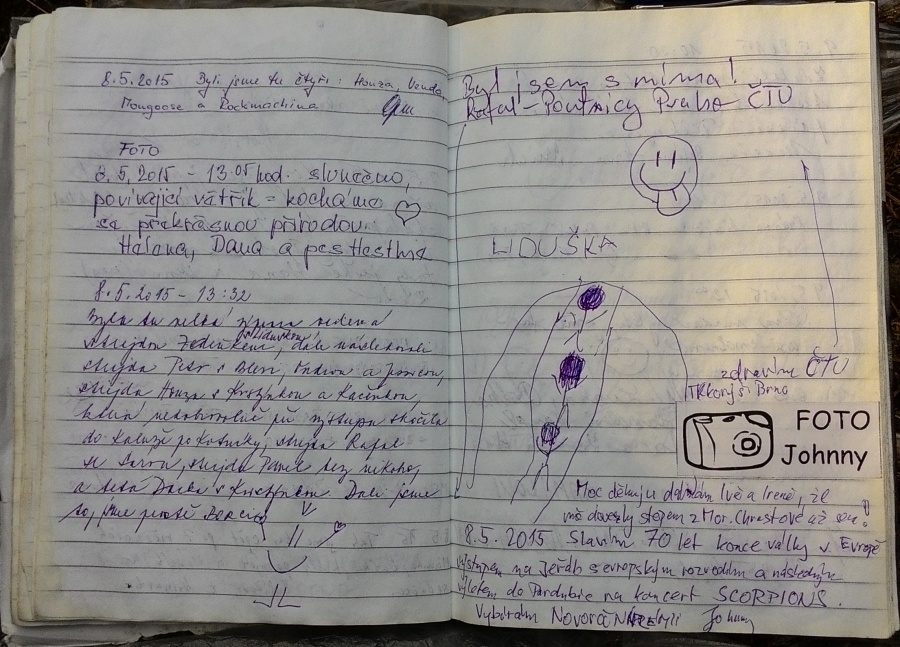 8.5.2015 Byli jsme tu čtyři: Honza, Venda,
Mongoose a Rockmachina
FOTO
8.5.2015 - 13:05 hod. slunečno,
povívající větřík = kocháme
se překrásnou přírodou.
Helena, Dana a pes Hestina
8.5.2015 - 13:32
Byla tu velká výprava vedena
strejdou Zdeňkem, dále následovali
strejda Petr s
strejda Honza s Kryštůfkem a Kačenkou,
která nedobrovolně při výstupu skočila
do kaluže po kotníky, strejda Rafal
se Sárou, strejda Pavel bez nikoho,
a teta Daďka s Kryštůfkem. Dali jsme
to, jsme prostě
Byl jsem s nima!
Rafal - Poutníci Praha ČTU
LIDUŠKA
zdravím ČTU
Brno
FOTO
Johnny
Moc děkuju dámám Ivě a Ireně, že
mě dovezly stopem z Mor. Chrastové až sem!
8.5.2015 Slavím 70 let konce války v Evropě
výstupem na Jeřáb s evropským rozvodím a následným
výletem do Pardubic na koncert SCORPIONS.
Vybírám Johnny